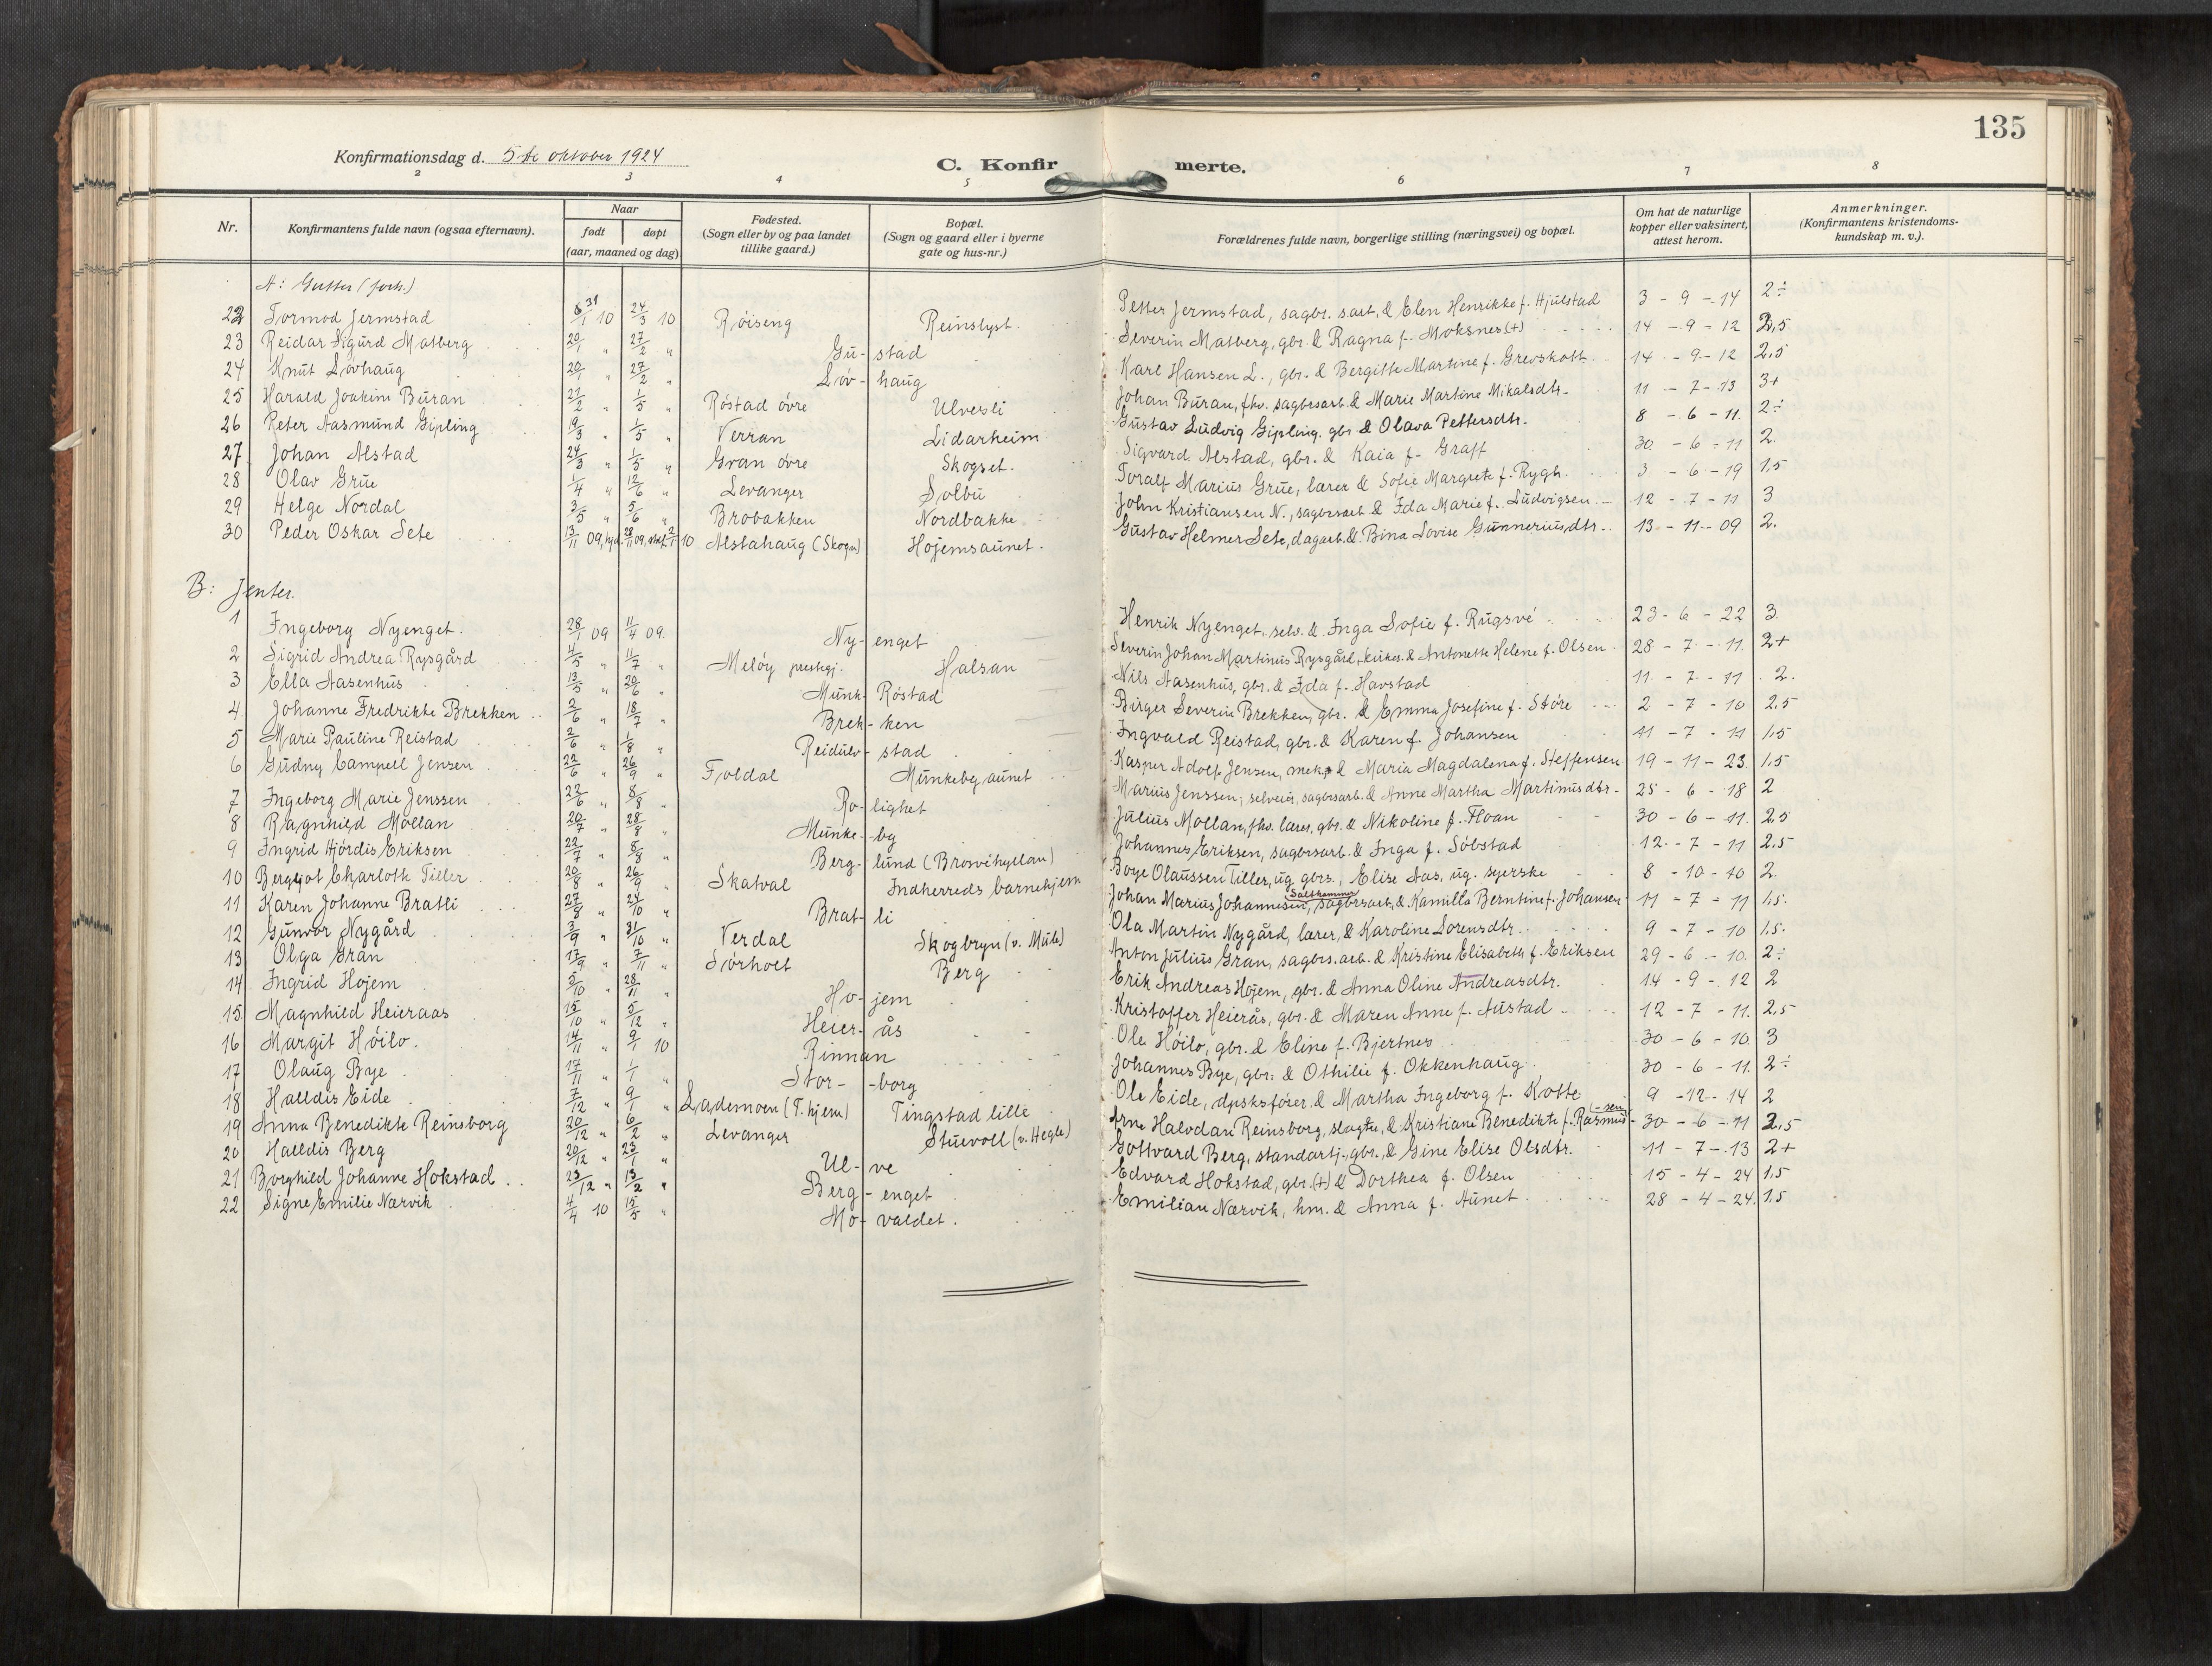 135
Konfirmationsdag d. 5te oktober 1924
C. Konfir merte.
2 3 4 5 6 7 8
Nr. Konfirmantens fulde navn (ogsaa efternavn). Naar født døpt (aar, maaned og dag) Fødested. (Sogn eller by og paa landet tillike gaard.) Bopæl. (Sogn og gaard eller i byerne gate og hus-nr.) Forældrenes fulde navn, borgerlige stilling (næringsvei) og bopæl. Om hat de naturlige kopper eller vaksinert, attest herom. Anmerkninger. (Konfirmantens kristendoms- kundskap m. v.).
A: Gutter (forts.)
22 Tormod Jermstad 31/1 10 24/3 10 Röiseng Reinslyst. Petter Jermstad, sagbr. sart. & Elen Henrikke f. Hjulstad 3 - 9 - 14 2÷
23 Reidar Sigurd Matberg 20/1 " 27/2 " Gu- stad Severin Matberg, gbr. & Ragna f. Moksnes (+) 14 - 9 - 12 2,5
24 Knut Lövhaug 20/1 " 27/2 " Löv- haug Karl Hansen L., gbr. & Bergitte Martine f. Grevskott 14 - 9 - 12 2,5
25 Harald Joakim Buran 21/2 " 1/5 " Röstad övre Ulvesli Johan Buran, fhv. sagbrsarb. & Marie Martine Mikalsdtr. 11 - 7 - 13 3+
26 Peter Aasmund Gipling 19/3 " 1/5 " Verran Lidarheim Gustav Ludvig Gipling. gbr & Olava Pettersdtr. 8 - 6 - 11. 2÷
27 Johan Alstad 24/3 " 1/5 " Gran övre Skogset. Sigvard Alstad, gbr. & Kaia f. Graff 30 - 6 - 11 2.
28 Olav Grue 1/4 " 12/6 " Levanger Solbu Toralf Marius Grue, lærer & Sofie Margrete f. Rygh. 3 - 6 - 19 1,5
29 Helge Nordal 3/5 " 5/6 " Brobakken Nordbakke John Kristiansen N., sagbrsarb & Ida Marie f. Ludvigsen. 12 - 7 - 11 3
30 Peder Oskar Sete 13/11 09, hjd. 28/11 09, stadf. 2/1 10 Alstahaug (Skogn) Hojemsaunet. Gustav Helmer Sete, dagarb. & Bina Lovise Gunneriusdtr. 13 - 11 - 09 2.
B: Jenter.
1 Ingeborg Nyenget. 28/1 09 11/4 09. Ny- enget Henrik Nyenget. selv. & Inga Sofie f. Rugsvé 23 - 6 - 22 3.
2 Sigrid Andrea Rysgård 4/5 " 11/7 " Melöy prestegj. Halsan Severin Johan Martinus Rysgård, kirkes. & Antonette Helene f. Olsen. 28 - 7 - 11. 2+
3 Ella Aasenhus 13/5 " 20/6 " Munk- Röstad Nils Aasenhus, gbr. & Ida f. Havstad 11 - 7 - 11 2.
4 Johanne Fredrikke Brekken 2/6 " 18/7 " Brek- ken Birger Severin Brekken, gbr. & Emma Josefine f. Störe 2 - 7 - 10 2,5
5 Marie Pauline Reistad 2/6 " 1/8 " Reidulv- stad Ingvald Reistad, gbr. & Karen f. Johansen 11 - 7 - 11 1,5
6 Gudny Campell Jensen 22/6 " 26/9 " Foldal Munkebyaunet Kasper Adolf Jensen, mek. & Maria Magdalena f. Steffensen 19 - 11 - 23. 1,5
7 Ingeborg Marie Jenssen 22/6 " 8/8 " Ro- lighet Marius Jenssen, selveier, sagbrsarb. & Anne Martha Martinusdtr. 25 - 6 - 18 2
8 Ragnhild Möllan 20/7 " 28/8 " Munke- by Julius Mollan, fhv. lærer, gbr. & Nikoline f. Floan 30 - 6 - 11. 2,5
9 Ingrid Hjördis Eriksen 22/7 " 8/8 " Berg- lund (Brosvéhyllan) Johannes Eriksen, sagbrsarb. & Inga f. Söbstad 12. - 7 - 11 2,5
10 Bergljot Charlotte Tiller 20/8 " 26/9 " Skatval Indherreds barnehjem Boye Olaussen Tiller, ug. gbrs., Elise Aas, ug. syerske 8 - 10 - 10 2.
11 Karen Johanne Bratli 27/8 " 24/10 " Brat- li Johan Marius Johannesen Saltkammer, sagbrsarb, & Kamilla Berntine f. Johansen 11 - 7 - 11 1,5.
12 Gunvor Nygård 3/9 " 31/10 " Verdal Skogbryn (v. Mule) Ola Martin Nygård, lærer, & Karoline Lorensdtr. 9 - 7 - 10 1,5.
13 Olga Gran 17/9 " 7/11 " Sörholt Berg Anton Julius Gran, sagbrs.arb. & Kristine Elisabeth f. Eriksen 29 - 6 - 10. 2÷
14 Ingrid Hojem 5/10 " 28/11 " Ho- jem Erik Andreas Hojem, gbr. & Anna Oline Andreasdtr. 14 - 9 - 12 2
15 Magnhild Heieraas 15/10 " 5/12 " Heier- ås Kristoffer Heierås, gbr. & Maren Anne f. Austad 12 - 7 - 11. 2,5
16 Margit Höilo. 14/11 " 9/1 10 Rinnan Ole Höilo, gbr. & Eline f. Bjertnes 30 - 6 - 10. 3
17 Olaug Bye 17/11 " 1/1 " Stor- borg Johannes Bye, gbr. & Othilie f. Okkenhaug 30 - 6 - 11. 2÷
18 Halldis Eide 7/12 " 9/1 " Lademoen (T.hjem) Tingstad lille Ole Eide, dpsksförer. & Martha Ingeborg f. Kotte 9 - 12 - 14 2
19 Anna Benedikte Reinsborg 20/12 " 6/2 " Levanger Stuevoll (v. Hegle) Arne Halvdan Reinsborg, slagter, & Kristiane Benedikte f. Rasmus(-sen) 30 - 6 - 11 2,5
20 Halldis Berg 20/12 " 23/1 " Ul- ve Gottvard Berg, standartj., gbr., & Gine Elise Olsdtr. 11 - 7 - 13 2+
21 Borghild Johanne Hokstad 23/12 " 13/2 " Berg- enget Edvard Hokstad, gbr. (+) & Dorthea f. Olsen 15 - 4 - 24 1,5
22 Signe Emilie Nærvik 4/4 10 15/5 " Mo- valdet. Emilian Nærvik, hm. & Anna f. Aunet 28 - 4 - 24. 1,5